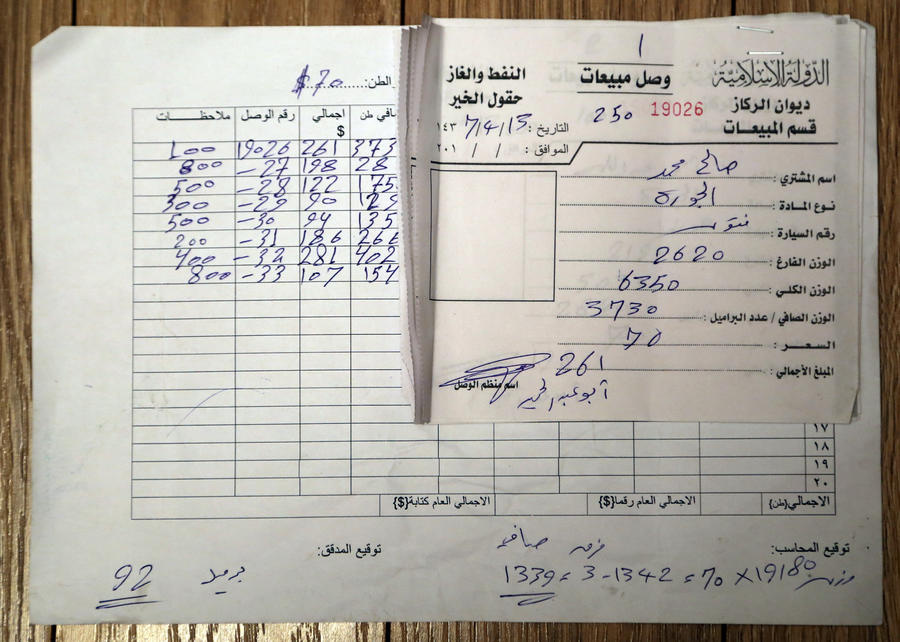 الدولة الإسلامية
ديوان الركاز
قسم المبيعات
1
وصل مبيعات
250 19026
النفط والغاز
حقول الخير
التاريخ: 13/4/7 ١٤٣
الموافق: / / ٢٠١
اسم المشتري: صالح محمد
نوع المادة:
رقم السيارة:
الوزن الفارغ: 2620
الوزن الكلي: 6350
الوزن الصافي / عدد البراميل: 3730
السعر: 70
المبلغ الأجمالي: 261
اسم منظم الوصل
الطن: $70
افي طن اجمالي $ رقم الوصل ملاحظات
373 261 19026 100
28 198 27- 800
175 122 28- 500
129 90 29- 300
135 94 30- 500
266 186 31- 200
402 281 32- 400
154 107 33- 800
١٧
١٨
١٩
٢٠
الاجمالي(طن) الاجمالي العام رقما{$} الاجمالي العام كتابة{$}
توقيع المحاسب: توقيع المدقق:
1339 = 3-1342 = 70 X 19180
92